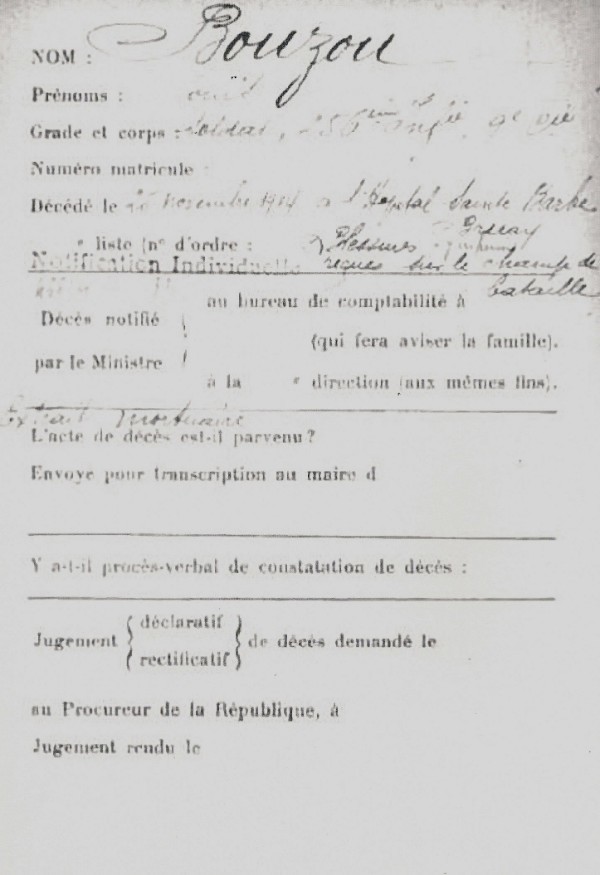 NOM : Bouzou
Prénoms :
Grade et corps : Soldat, 256 9e
Numéro matricule
Décédé le novembre 1914 à l'Hôpital Sainte Barbe
liste (n° d'ordre : Blessures
Notification Individuelle reçues sur le champ de
bataille
au bureau de comptabilité à
Décès notifié
(qui fera aviser la famille).
par le Ministre
à la " direction (aux mêmes fins).
Extrait mortuaire
L'acte de décès est-il parvenu?
Envoyé pour transcription au maire d
Y a-t-il procès-verbal de constatation de décès :
déclaratif
Jugement de décès demandé le
rectificatif
au Procureur de la République, à
Jugement rendu le